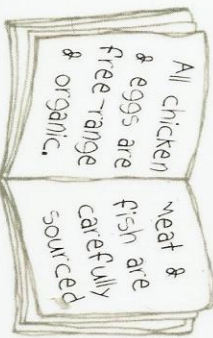 All chicken
& eggs are
free-range
& organic.
Meat &
fish are
carefully
sourced